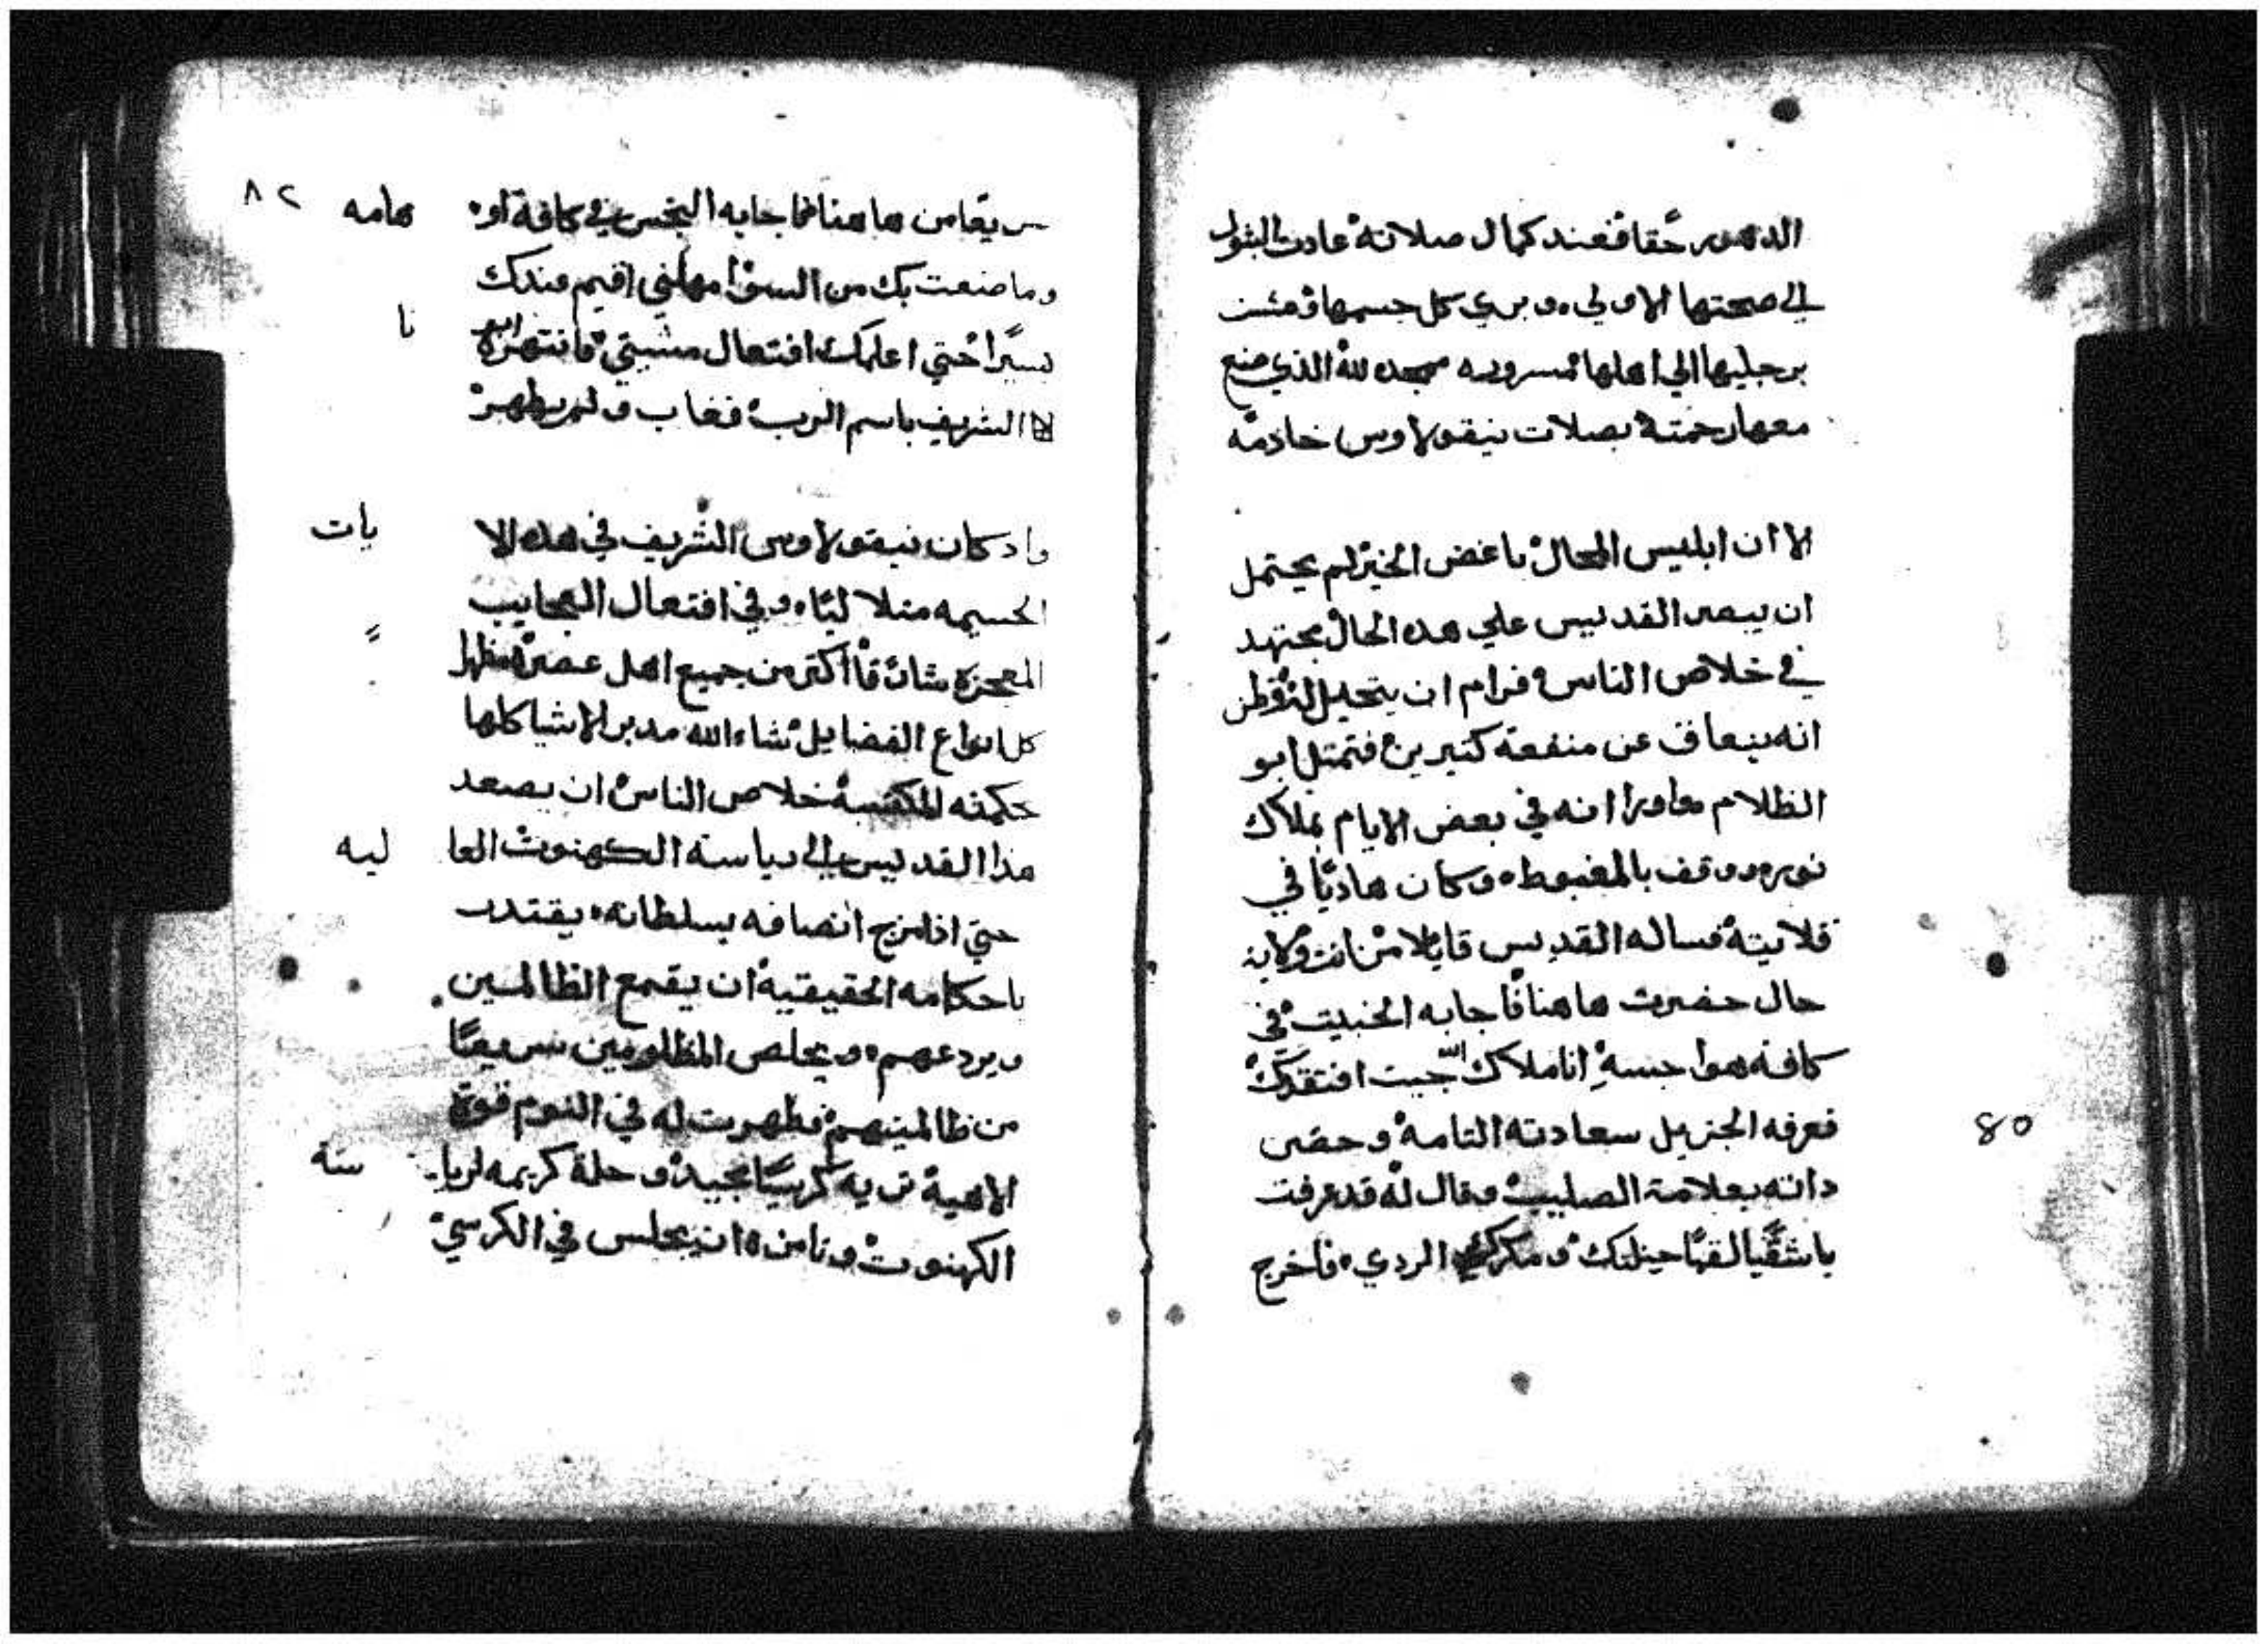 الدهور حقا فعند كمال صلاته عادت البتول
الي صحتها الاولي وبري كل جسمها ومشت
برجليها الي اهلها مسروره ممجده لله الذي صنع
معها رحمته بصلات نيقولاوس خادمه
الا ان ابليس المحال باغض الخير لم يحتمل
ان يبصر القديس علي هده الحال مجتهد
في خلاص الناس فرام ان يتحيل له وظن
انه ينعاق عن منفعة كتيرين فتمتل ابو
الظلام في بعض الايام بملاك
نور ووقف بالمغبوط وكان هاديا في
قلايته فساله القديس قايلا من انت ولاية
حال حضرت هاهنا فاجابه الخبيت في
كافة انا ملاك الله جيت افتقدك
فعرفه الجزيل سعادته التامه وحصن
داته بعلامة الصليب وقال له قد عرفت
يا شقيا حيلتك ومكرك الردي فاخرج
80
٨٢
سريعا من هاهنا فاجابه النجس في كافة او هامه
وما صنعت بك من السوا مهلني اقيم عندك
يسيرا حتي اعلمك افتعال مشيتي فانتهره ابو نا
الشريف باسم الرب فغاب ولم يظهر
واد كان نيقولاوس الشريف في هده الا يات
الجسيمه متلاليا وفي افتعال العجايب
المعجزه شاق اكتر من جميع اهل عصره مظهرا
كل انواع الفضايل شاء الله مدبر الاشيا كلها
حكمته خلاص الناس ان يصعد
هذا القديس الي رياسة الكهنوت العا ليه
حتي اذا مزج انصافه بسلطانه يقتدر
باحكامه الحقيقيه ان يقمع الظالمين
ويردعهم ويخلص المظلومين سريعا
من ظالمينهم فظهرت له في النوم قوة
الاهية تريه كرسيا مجيدا وحلة كريمه لريا سة
الكهنوت وتامره ان يجلس في الكرسي